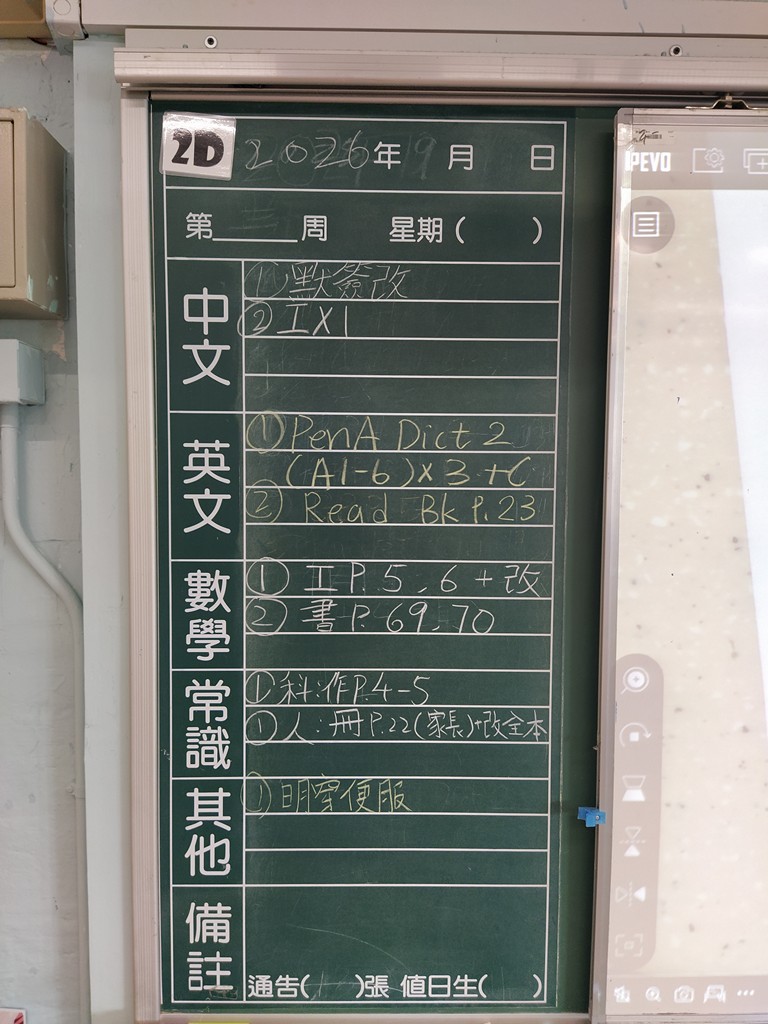 2D 2026年 月 日
第 周 星期( )
中文
① 默簽改
② 工X1
英文
① PenA Dict 2
(A1-6)x3 +C
② Read Bk P.23
數學
① 工P.5、6+改
② 書P.69、70
常識
① 科:作P.4-5
① 人:冊P.22(家長)+改全本
其他
① 明穿便服
備註
通告( )張 值日生( )
IPEVO